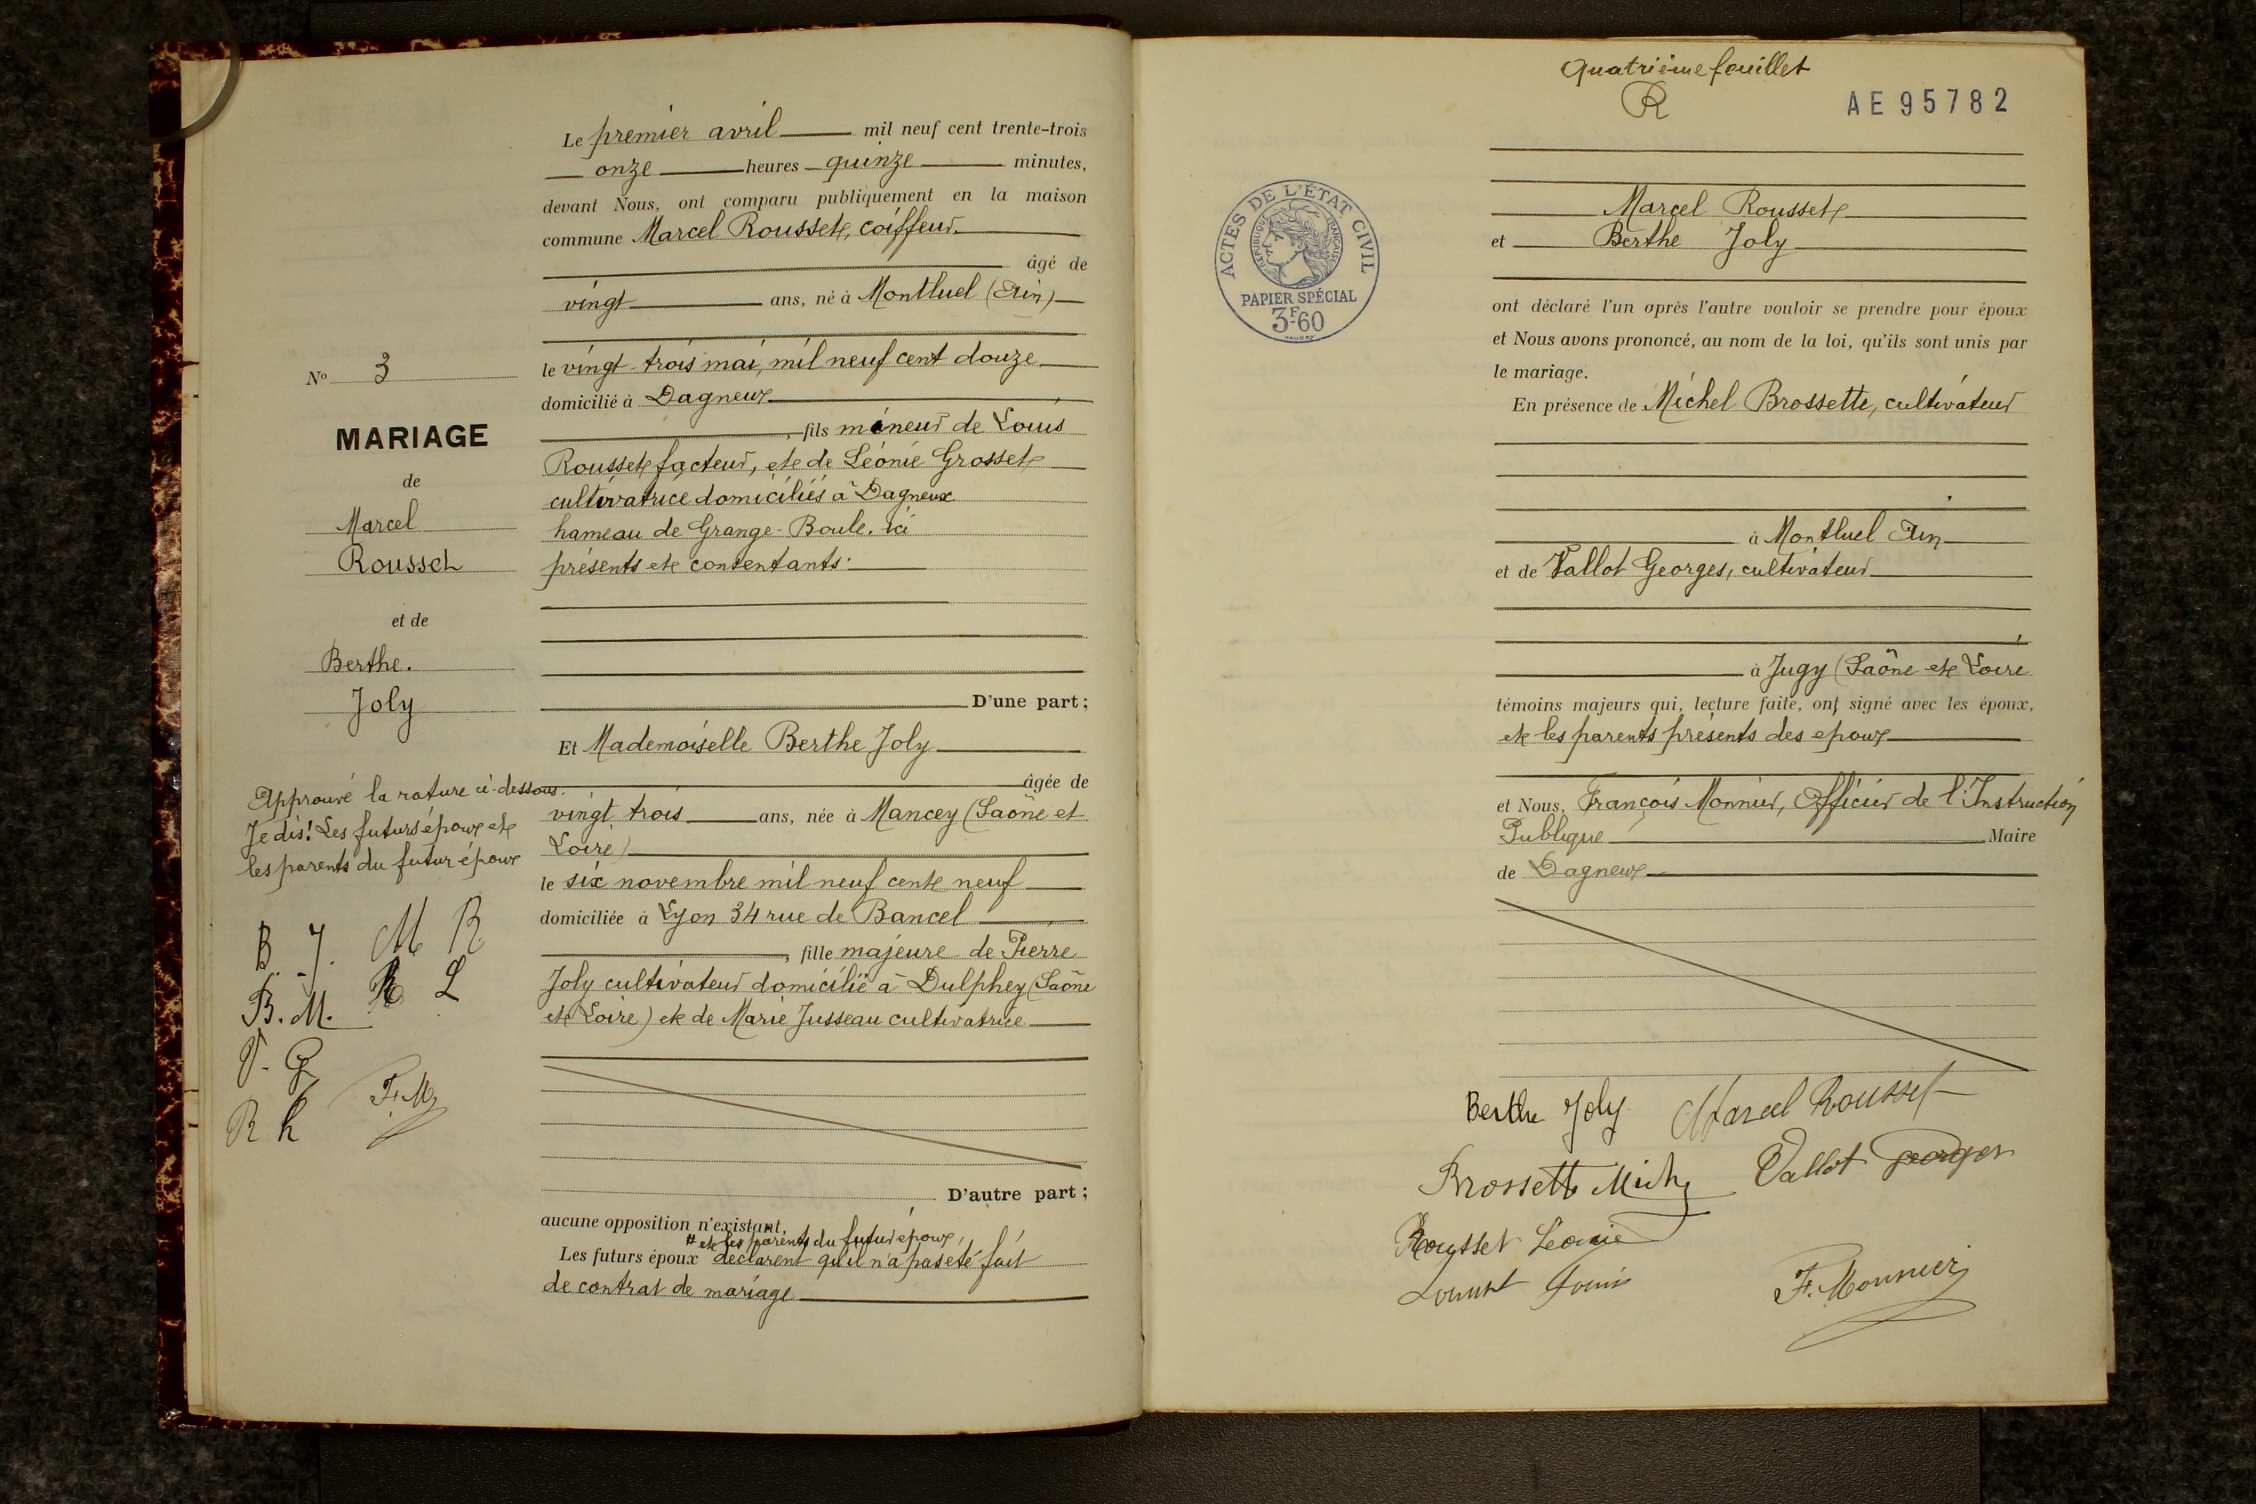 Le premier avril mil neuf cent trente-trois
onze heures quinze minutes,
devant Nous, ont comparu publiquement en la maison
commune Marcel Rousset, coiffeur.
âgé de
vingt ans, né à Montluel (Ain)
le vingt-trois mai, mil neuf cent douze
domicilié à Dagneux
, fils mineur de Louis
Rousset facteur, et de Léonie Grosset
cultivatrice domiciliés à Dagneux
hameau de Grange-Boule. ici
présents et contentants.
D'une part ;
Et Mademoiselle Berthe Joly
âgée de
vingt trois ans, née à Mancey (Saône et
Loire)
le six novembre mil neuf cent neuf
domiciliée à Lyon 34 rue de Bancel
, fille majeure de Pierre
Joly cultivateur domicilié à Dulphey (Saône
et Loire) et de Marie Jusseau cultivatrice
D'autre part ;
aucune opposition n'existant,
# et les parents du futur époux,
Les futurs époux déclarent qu'il n'a pas été fait
de contrat de mariage
No 3
MARIAGE
de
Marcel
Rousset
et de
Berthe.
Joly
Approuvé la rature ci-dessous.
Je dis! Les futurs époux et
les parents du futur époux
B. J. M R
B. M. R L
V. G
R h F. M
Quatrième feuillet
R
AE 95782
ACTES DE L'ÉTAT CIVIL
RÉPUBLIQUE FRANÇAISE
PAPIER SPÉCIAL
3F60
Marcel Rousset
et Berthe Joly
ont déclaré l'un après l'autre vouloir se prendre pour époux
et Nous avons prononcé, au nom de la loi, qu'ils sont unis par
le mariage.
En présence de Michel Brossette, cultivateur
à Montluel Ain
et de Vallot Georges, cultivateur
à Jugy (Saône et Loire
témoins majeurs qui, lecture faite, ont signé avec les époux,
et les parents présents des epoux
et Nous, François Monnier, Officier de l'Instruction
Publique Maire
de Dagneux
Berthe Joly Marcel Rousset
Brossette Vallot Georges
Rousset Léonie
Louis F. Monnier